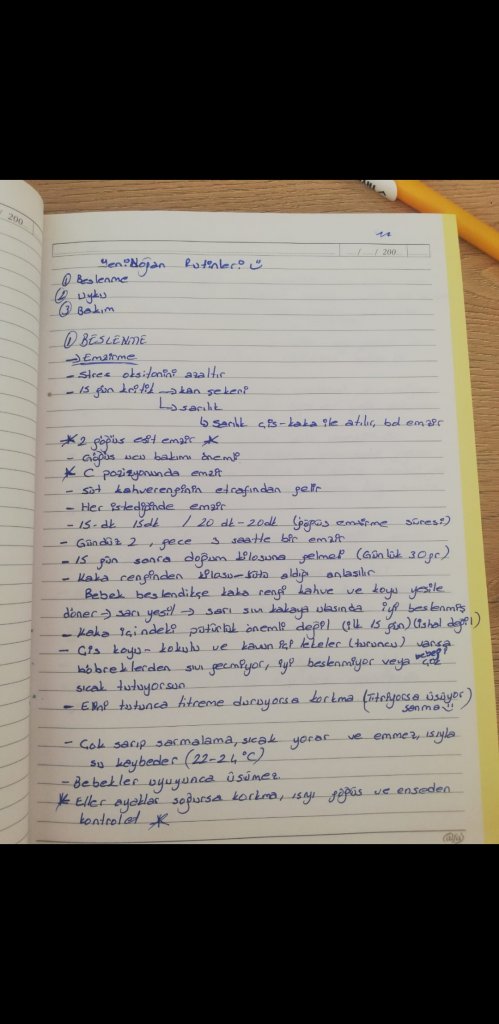 / 200
11
... / ... / 200..
Yenidoğan Rutinleri
① Beslenme
② Uyku
③ Bakım
① BESLENME
→ Emzirme
- Stres oksitonini azaltır
- 15 gün kritik → kan şekeri
↳ sarılık
↳ sarılık çiş-kaka ile atılır, bol emzir
* 2 göğüs eşit emzir *
- Göğüs ucu bakımı önemi
* C pozisyonunda emzir
- Süt kahverenginin etrafından gelir
- Her istediğinde emzir
- 15-dk 15dk / 20 dk-20dk (göğüs emzirme süresi)
- Gündüz 2, gece 3 saatte bir emzir
- 15 gün sonra doğum kilosuna gelmeli (Günlük 30 gr.)
- Kaka renginden kilosu-sütü aldığı anlaşılır
Bebek beslendikçe kaka rengi kahve ve koyu yeşile
döner → sarı yeşil → sarı sıvı kakaya ulaşında iyi beslenmiş
- Kaka içindeki pütürlük önemli değil (ilk 15 gün) (ishal değil)
- Çiş koyu-kokulu ve kavun içi lekeler (turuncu) varsa
böbreklerden sıvı geçmiyor, iyi beslenmiyor veya bebeği çok
sıcak tutuyorsun
- Elini tutunca titreme duruyorsa korkma (Titriyorsa üşüyor
sanma
- Çok sarıp sarmalama, sıcak yorar ve emmez, ısıyla
su kaybeder (22-24 °C)
- Bebekler uyuyunca üşümez.
* Eller ayaklar soğursa korkma, ısıyı göğüs ve enseden
kontrol et *
alfa